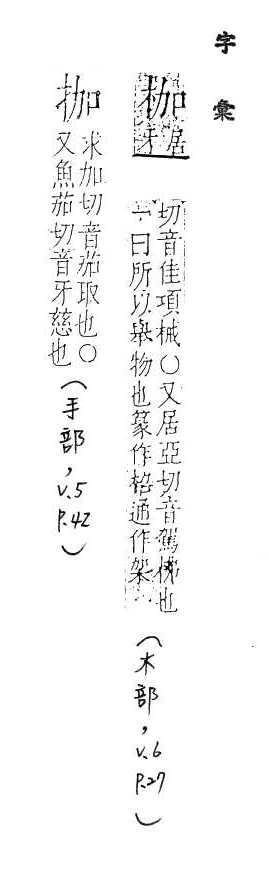 字彙
枷
居
牙
切音佳項械○又居亞切音駕也
一曰所以舉物也篆作格通作架
(木部, v.6 P.27)
拁
求加切音茄取也○
又魚茄切音牙慈也
(手部, v.5 P.42)